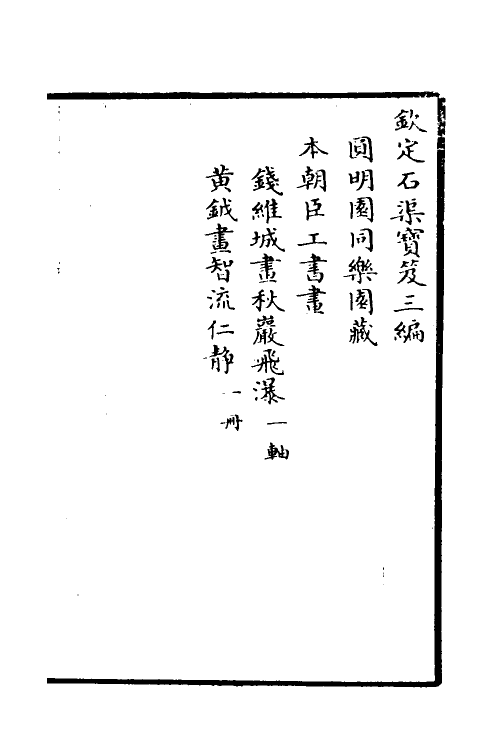 欽定石渠寶笈三編
圓明園同樂園藏
本朝臣工書畫
錢維城畫秋巖飛瀑一軸
黄鉞畫智流仁靜一冊